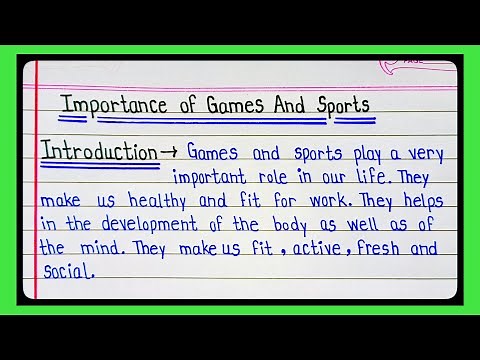 PAGE
Importance of Games And Sports
Introduction→ Games and sports play a very
important role in our life. They
make us healthy and fit for work. They helps
in the development of the body as well as of
the mind. They make us fit, active, fresh and
social.